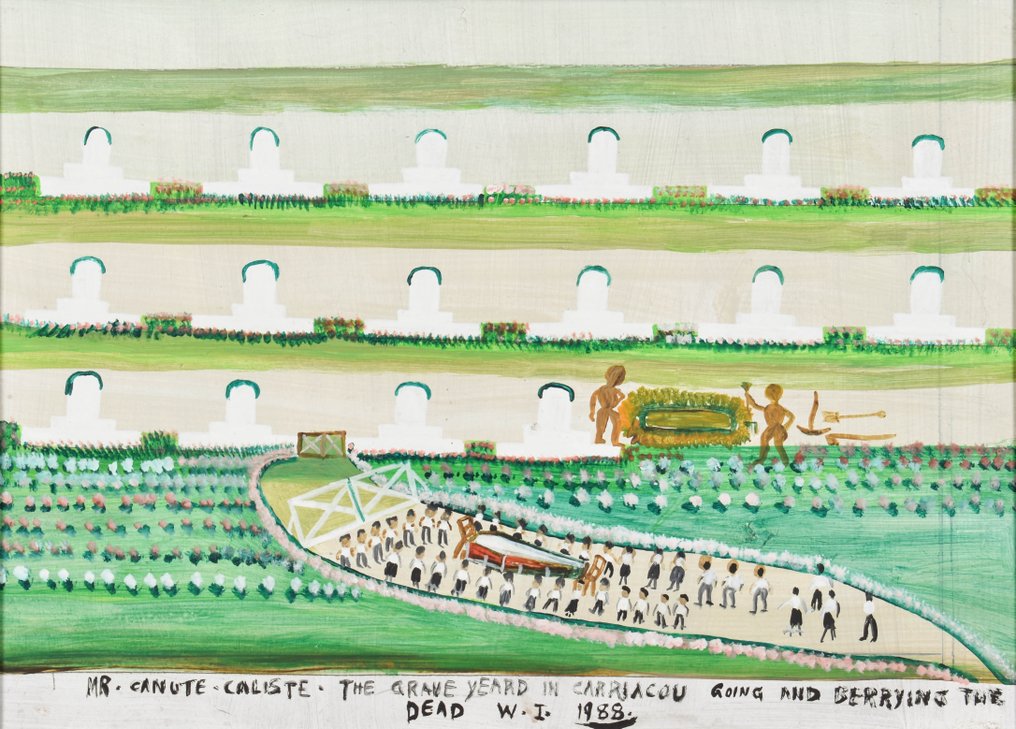 MR. CANUTE. CALISTE. THE GRAVE YEARD IN CARRIACOU GOING AND BERRYING THE
DEAD W. I. 1988.